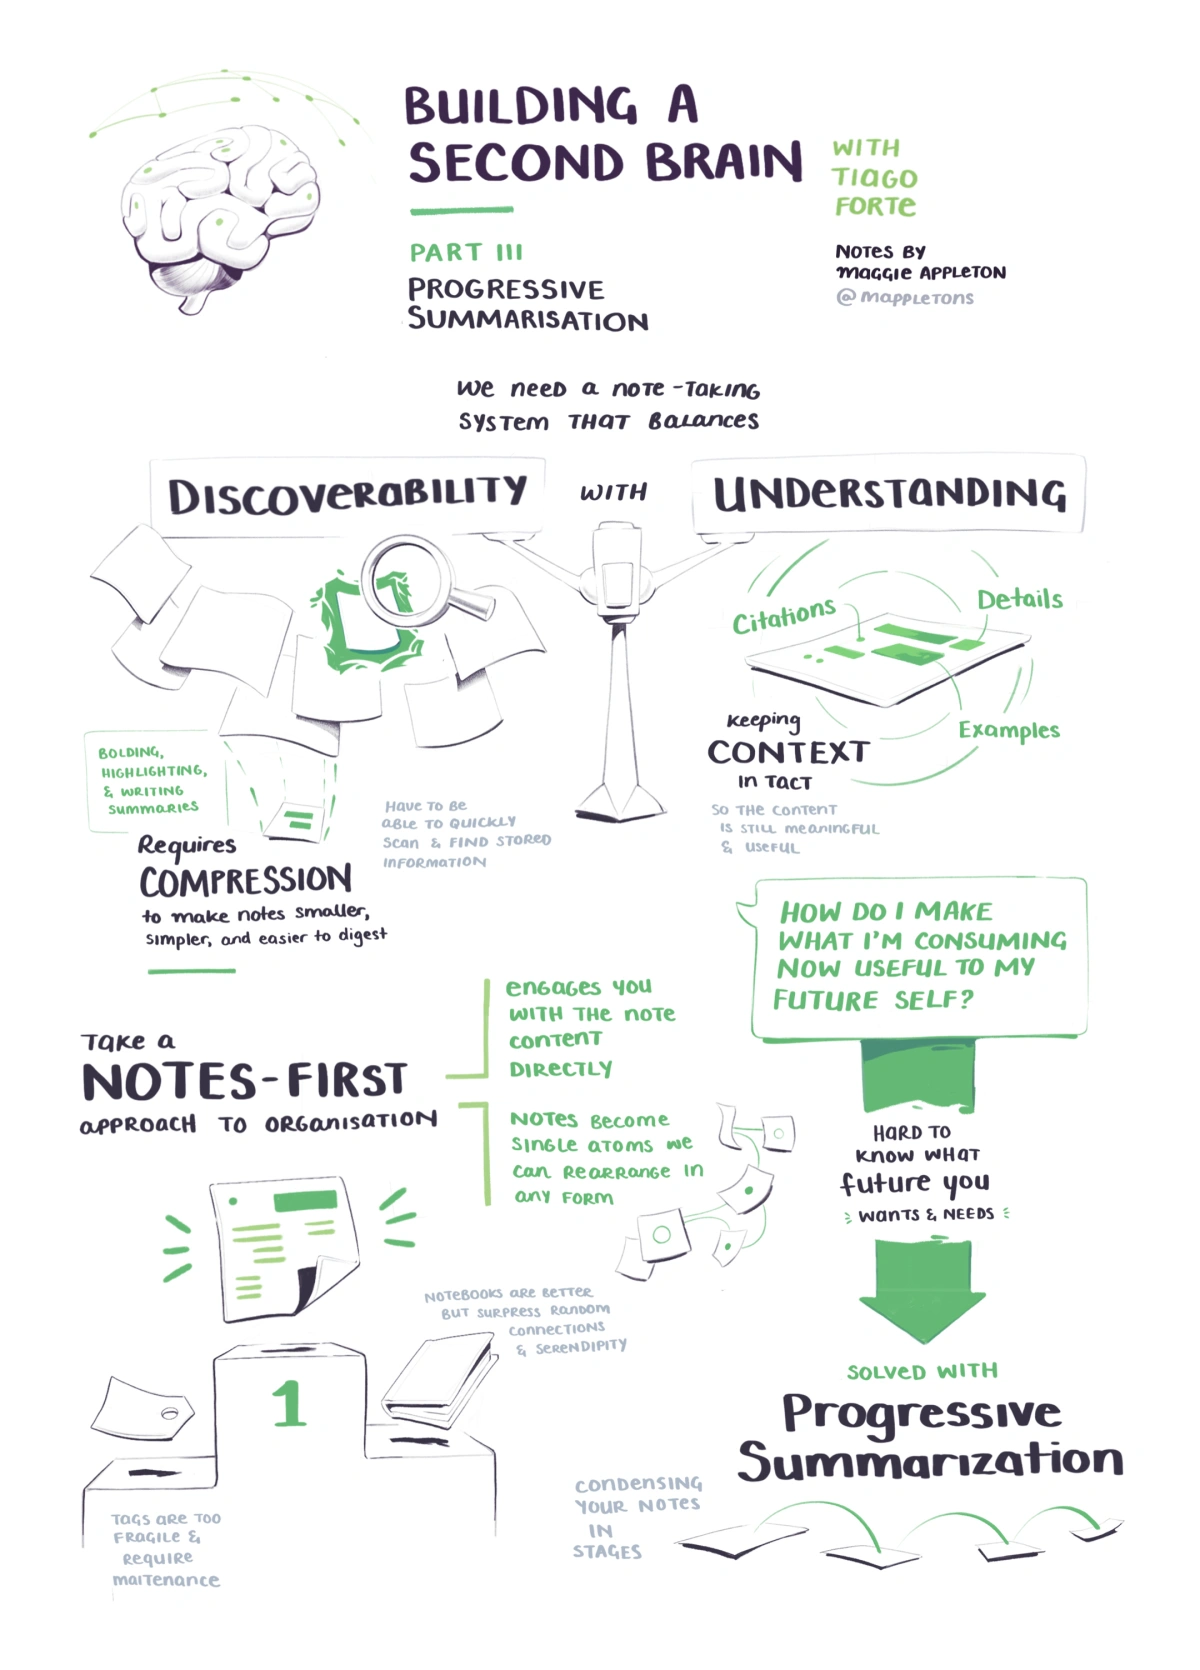 BUILDING A
SECOND BRAIN
WITH
TIAGO
FORTE
PART III
PROGRESSIVE
SUMMARISATION
NOTES BY
MAGGIE APPLETON
@MAPPLETONS
WE NEED A NOTE-TAKING
SYSTEM THAT BALANCES
DISCOVERABILITY
WITH
UNDERSTANDING
Citations
Details
Examples
keeping
CONTEXT
IN TACT
SO THE CONTENT
IS STILL MEANINGFUL
& USEFUL
BOLDING,
HIGHLIGHTING,
& WRITING
SUMMARIES
HAVE TO BE
ABLE TO QUICKLY
SCAN & FIND STORED
INFORMATION
Requires
COMPRESSION
to make notes smaller,
simpler, and easier to digest
HOW DO I MAKE
WHAT I'M CONSUMING
NOW USEFUL TO MY
FUTURE SELF?
TAKE A
NOTES-FIRST
APPROACH TO ORGANISATION
ENGAGES YOU
WITH THE NOTE
CONTENT
DIRECTLY
NOTES BECOME
SINGLE ATOMS WE
CAN REARRANGE IN
ANY FORM
HARD TO
KNOW WHAT
future you
WANTS & NEEDS
NOTEBOOKS ARE BETTER
BUT SURPRESS RANDOM
CONNECTIONS
& SERENDIPITY
1
TAGS ARE TOO
FRAGILE &
REQUIRE
MAITENANCE
SOLVED WITH
Progressive
Summarization
CONDENSING
YOUR NOTES
IN
STAGES